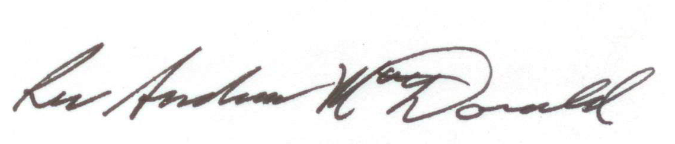 Rev Andrew MacDonald